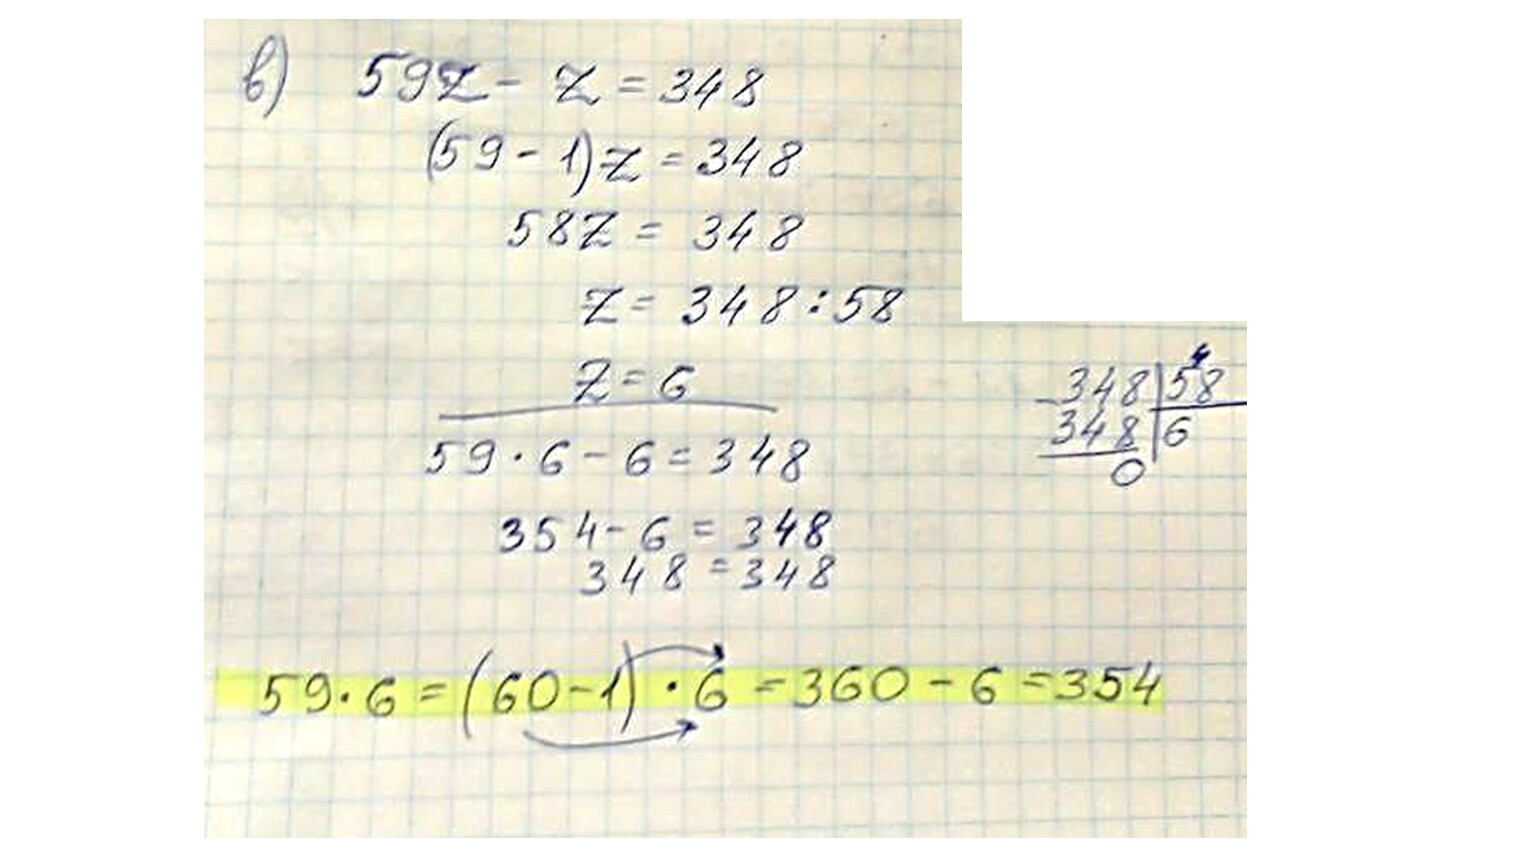 в) 59z - z = 348
(59 - 1)z = 348
58z = 348
z = 348 : 58
z = 6
59 · 6 - 6 = 348
354 - 6 = 348
348 = 348
4
- 348 | 58
348 | 6
0
59 · 6 = (60 - 1) · 6 = 360 - 6 = 354